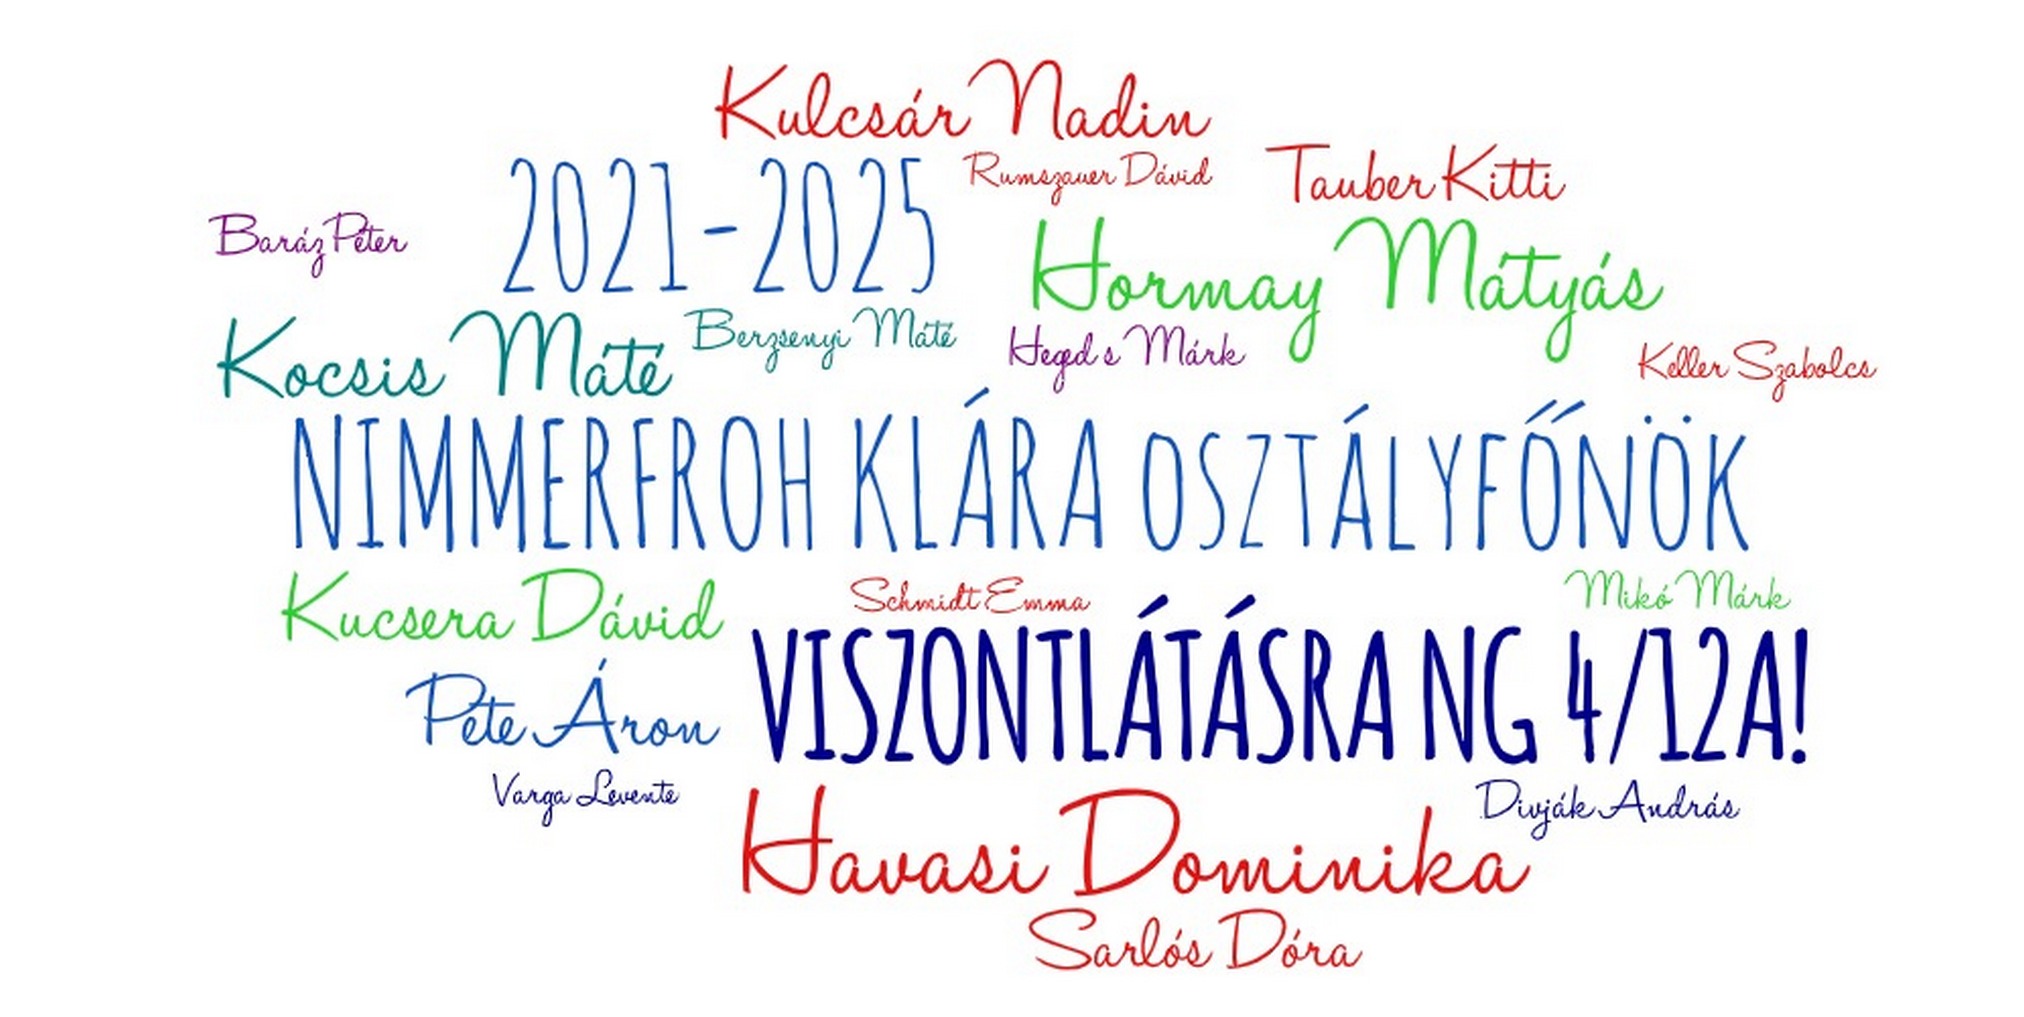 Kulcsár Nadin
2021-2025
Rumszauer Dávid
Tauber Kitti
Baráz Péter
Hormay Mátyás
Kocsis Máté
Berzsenyi Máté
Heged s Márk
Keller Szabolcs
NIMMERFROH KLÁRA OSZTÁLYFŐNÖK
Kucsera Dávid
Schmidt Emma
Mikó Márk
Pete Áron
VISZONTLÁTÁSRA NG 4/12A!
Varga Levente
Divják András
Havasi Dominika
Sarlós Dóra